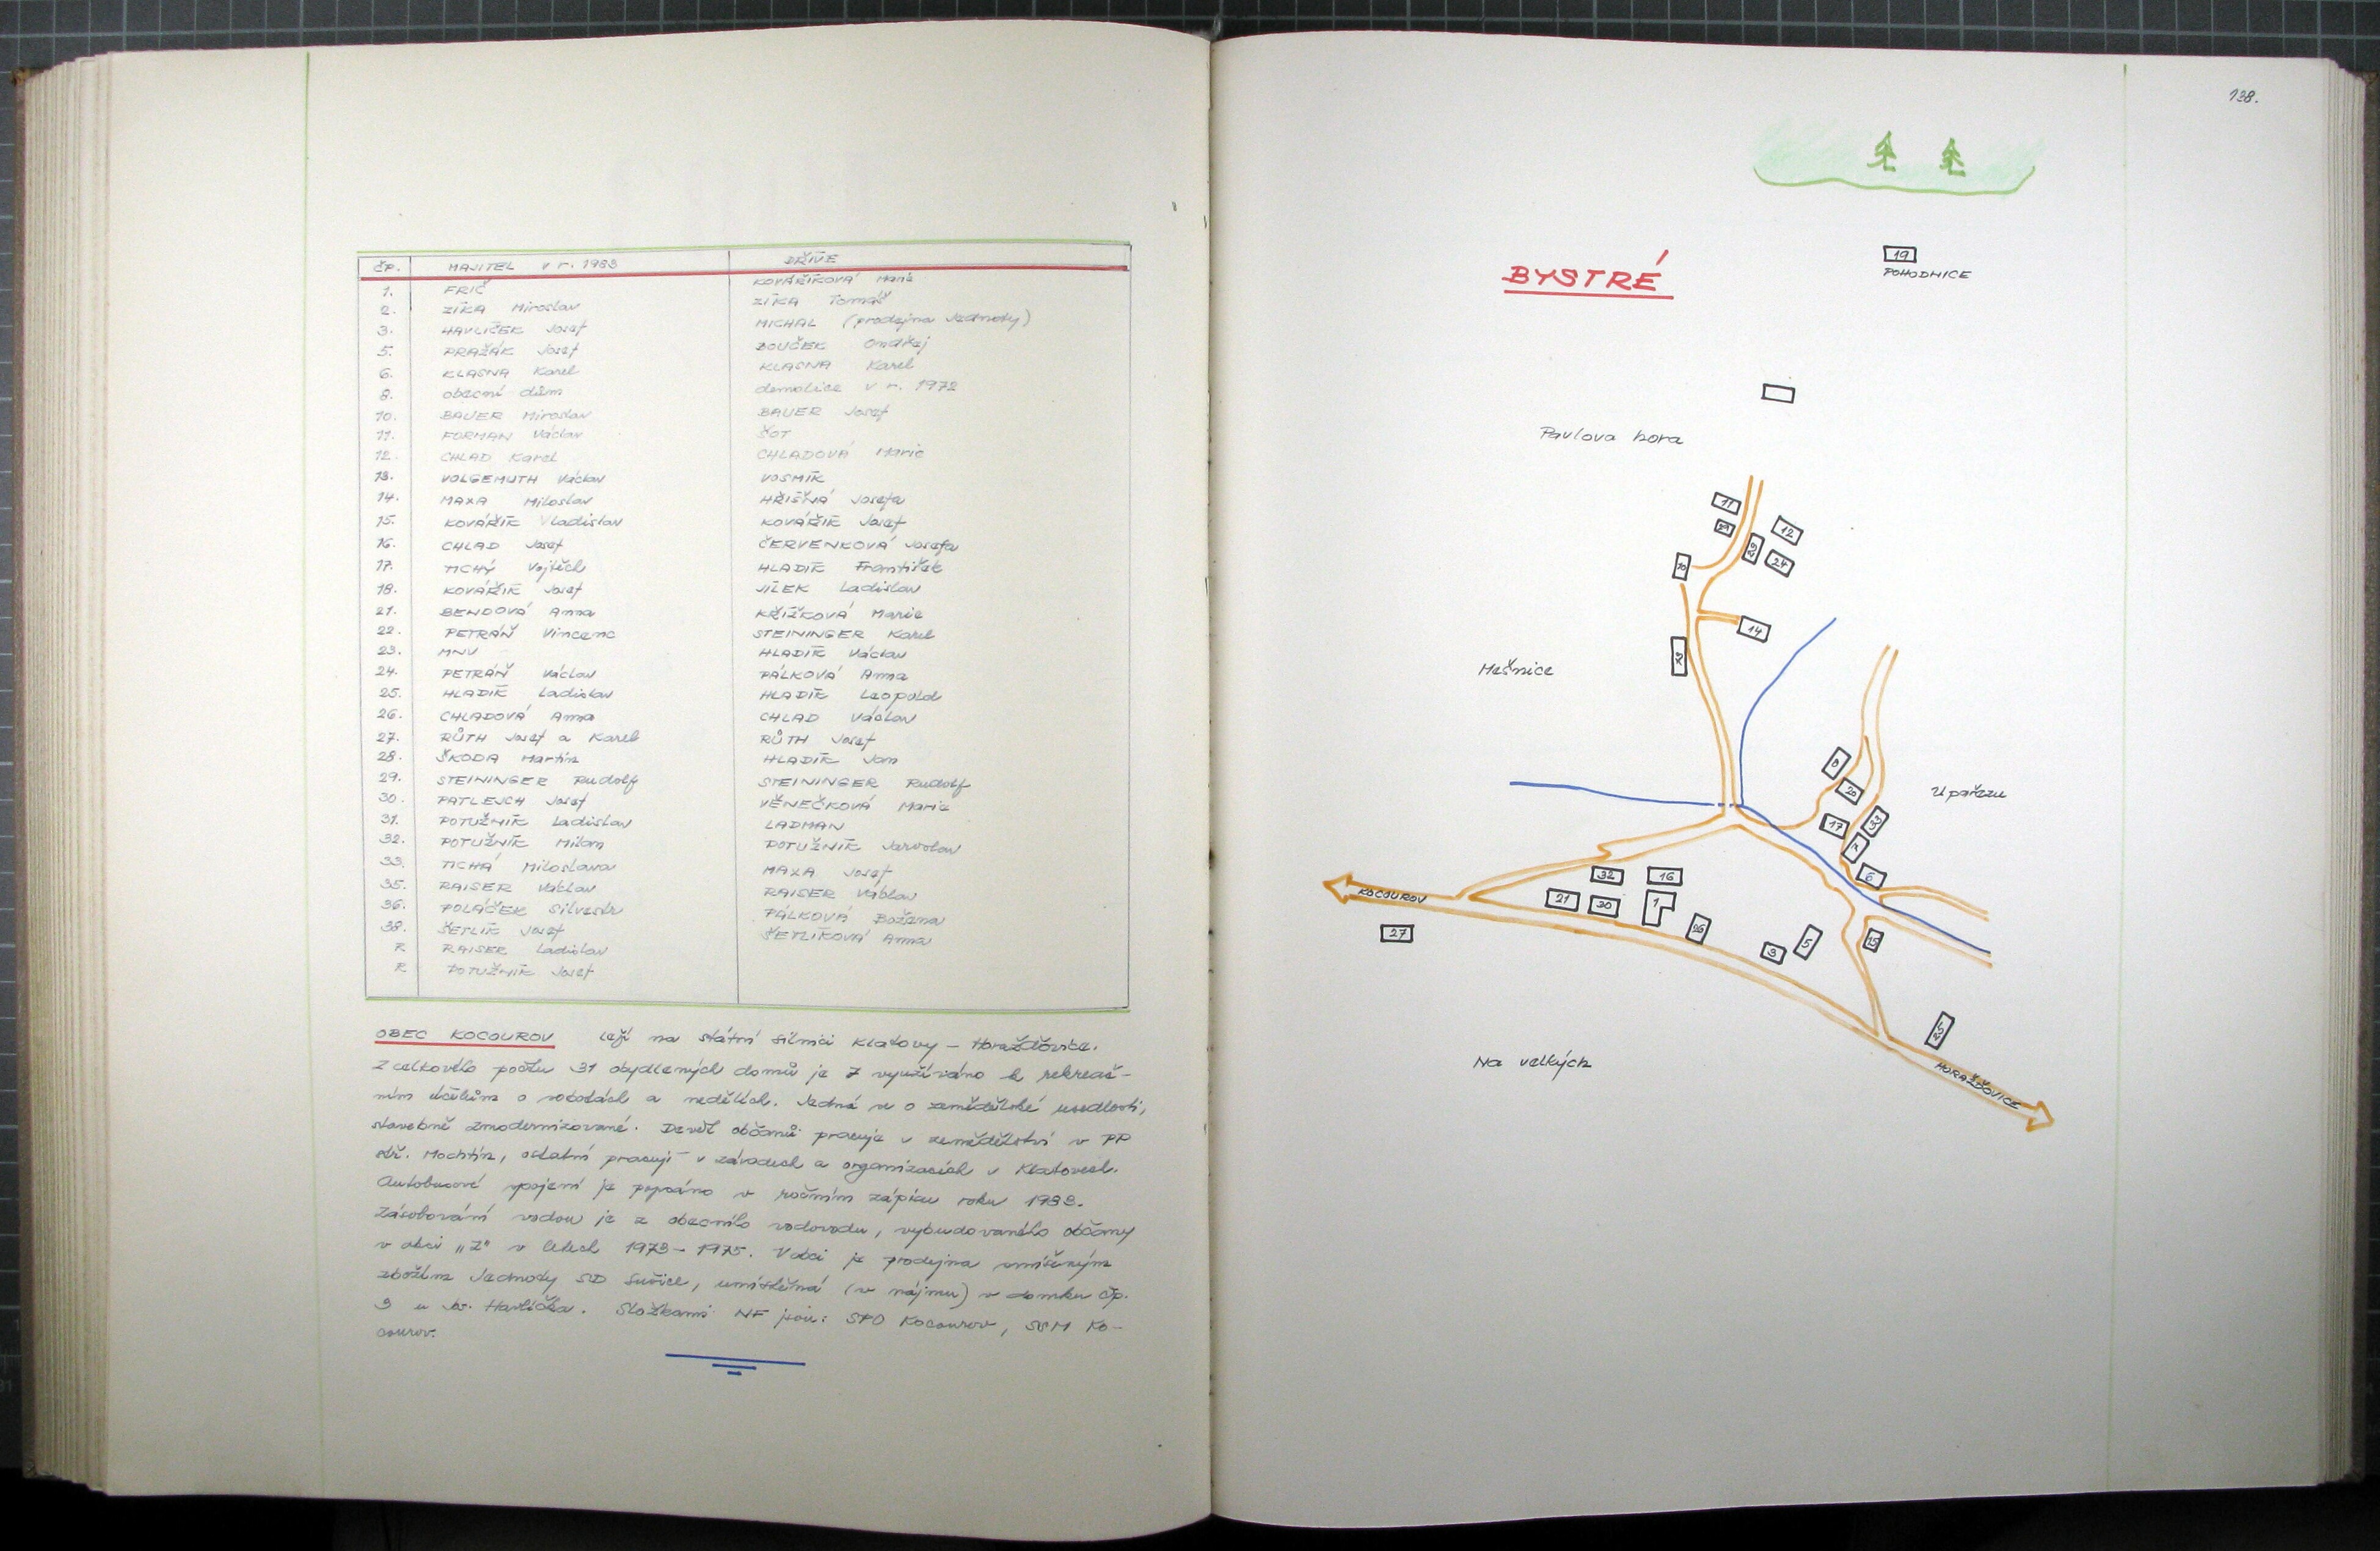 ČP. MAJITEL v r. 1983 DŘÍVE
1. FRIČ KOVÁŘÍKOVÁ Marie
2. ZÍKA Miroslav ZÍKA Tomáš
3. HAVLÍČEK Josef MICHAL (prodejna Jednoty)
5. PRAŽÁK Josef BOUČEK Ondřej
6. KLASNA Karel KLASNA Karel
8. obecní dům demolice v r. 1972
10. BAUER Miroslav BAUER Josef
11. FORMAN Václav ŠOT
12. CHLAD Karel CHLADOVÁ Marie
13. VOLGEMUTH Václav VOSMÍK
14. MAXA Miloslav HŘÍŠNÁ Josefa
15. KOVÁŘÍK Vladislav KOVÁŘÍK Josef
16. CHLAD Josef ČERVENKOVÁ Josefa
17. TICHÝ Vojtěch HLADÍK František
18. KOVÁŘÍK Josef JÍLEK Ladislav
21. BENDOVÁ Anna KŘÍŽKOVÁ Marie
22. PETRÁŇ Vincenc STEININGER Karel
23. MNV HLADÍK Václav
24. PETRÁŇ Václav PÁLKOVÁ Anna
25. HLADÍK Ladislav HLADÍK Leopold
26. CHLADOVÁ Anna CHLAD Václav
27. RŮTH Josef a Karel RŮTH Josef
28. ŠKODA Martin HLADÍK Jan
29. STEININGER Rudolf STEININGER Rudolf
30. PATLEJCH Josef VĚNEČKOVÁ Marie
31. POTUŽNÍK Ladislav LADMAN
32. POTUŽNÍK Milan POTUŽNÍK Jaroslav
33. TICHÁ Miloslava MAXA Josef
35. RAISER Václav RAISER Václav
36. POLÁČEK Silvestr PÁLKOVÁ Božena
38. ŠETLÍK Josef ŠETLÍKOVÁ Anna
R RAISER Ladislav
R POTUŽNÍK Josef
OBEC KOCOUROV leží na státní silnici Klatovy – Horažďovice.
Z celkového počtu 31 obydlených domů je 7 využíváno k rekreač-
ním účelům o sobotách a nedělích. Jedná se o zemědělské usedlosti,
stavebně zmodernizované. Devět občanů pracuje v zemědělství v PP
stř. Mochtín, ostatní pracují v závodech a organizacích v Klatovech.
Autobusové spojení je popsáno v ročním zápisu roku 1983.
Zásobování vodou je z obecního vodovodu, vybudovaného občany
v akci "Z" v letech 1973 – 1975. V obci je prodejna smíšeným
zbožím Jednoty SD Sušice, umístěná (v nájmu) v domku čp.
3 u Jos. Havlíčka. Složkami NF jsou: SPO Kocourov, SSM Ko-
courov.
138.
19
POHODNICE
BYSTRÉ
Pavlova hora
11
12
29
24
10
14
Mešnice
8
20
U pařezu
17
33
7
6
32
16
KOCOUROV
21
30
1
26
27
3
5
15
25
Na velkých
HORAŽĎOVICE